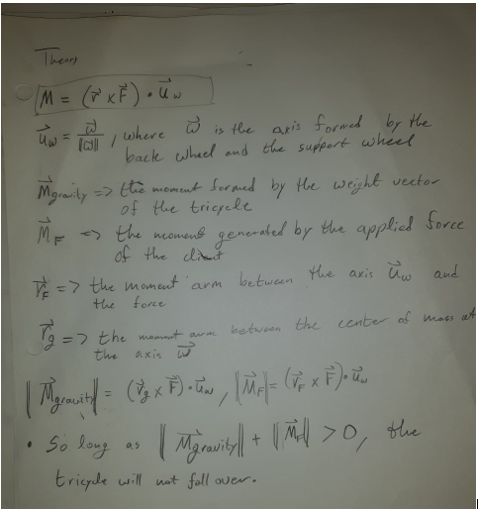 Theory
M = (r⃗ x F⃗) • u⃗w
u⃗w = ω⃗/||ω⃗||, where ω⃗ is the axis formed by the
back wheel and the support wheel
M⃗gravity => the moment formed by the weight vector
of the tricycle
M⃗F => the moment generated by the applied force
of the client
r⃗F => the moment arm between the axis u⃗w and
the force
r⃗g => the moment arm between the center of mass at
the axis ω⃗
||M⃗gravity|| = (r⃗g x F⃗) • u⃗w, ||M⃗F|| = (r⃗F x F⃗) • u⃗w
• So long as ||M⃗gravity|| + ||M⃗F|| > 0, the
tricycle will not fall over.